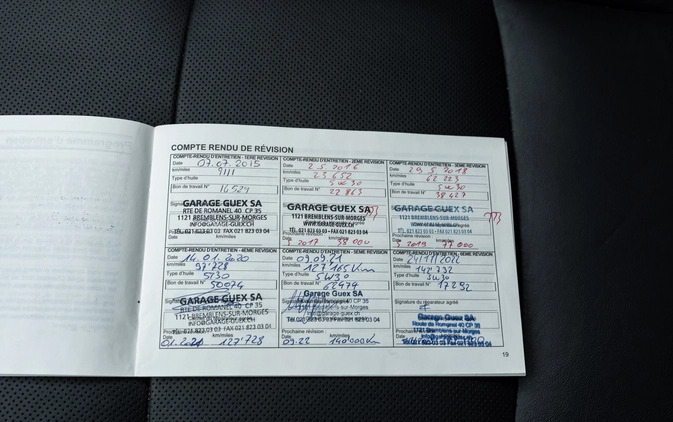 COMPTE RENDU DE RÉVISION
COMPTE-RENDU D'ENTRETIEN - 1ERE RÉVISION
Date 07.07.2015
km/miles 9111
Type d'huile
Bon de travail N° 16529
GARAGE GUEX SA
RTE DE ROMANEL 40 CP 35
1121 BREMBLENS-SUR-MORGES
INFO@GARAGE-GUEX.CH
TÉL. 021 823 03 03 FAX 021 823 03 04
COMPTE-RENDU D'ENTRETIEN - 2EME RÉVISION
Date 2.5.2016
km/miles 23 652
Type d'huile 5W30
Bon de travail N° 22 863
GARAGE GUEX SA
1121 BREMBLENS-SUR-MORGES
WWW.GARAGE-GUEX.CH
TÉL. 021 823 03 03 - FAX 021 823 03 04
Date 5.2017 38 000
COMPTE-RENDU D'ENTRETIEN - 3EME RÉVISION
Date 29.5.2018
km/miles 62 223
Type d'huile 5W30
Bon de travail N° 38 427
GARAGE GUEX SA
1121 BREMBLENS-SUR-MORGES
TÉL. 021 823 03 03 - FAX 021 823 03 04
Prochaine révision :
Date 5.2019 77 000
COMPTE-RENDU D'ENTRETIEN - 4EME RÉVISION
Date 14.01.2020
km/miles 97'728
Type d'huile 5/30
Bon de travail N° 50074
GARAGE GUEX SA
RTE DE ROMANEL 40 CP 35
1121 BREMBLENS-SUR-MORGES
INFO@GARAGE-GUEX.CH
TÉL. 021 823 03 03 FAX 021 823 03 04
Date 01.2021 127'728
COMPTE-RENDU D'ENTRETIEN - 5EME RÉVISION
Date 09.09.21
km/miles 127'165 Km
Type d'huile 5W30
Bon de travail N° 62474
Garage Guex SA
Tél. 021 823 03 03 Fax 021 823 03 04
Prochaine révision : km/miles
Date 09.22 140'000 Km
COMPTE-RENDU D'ENTRETIEN - 6EME RÉVISION
Date 24/11/2022
km/miles 142'732
Type d'huile 5W30
Bon de travail N° 17292
Signature du réparateur agréé
Garage Guex SA
Route de Romanel 40 CP 35
1121 Bremblens-sur-Morges
info@garage-guex.ch
Tél. 021 823 03 03 Fax 021 823 03 04
19